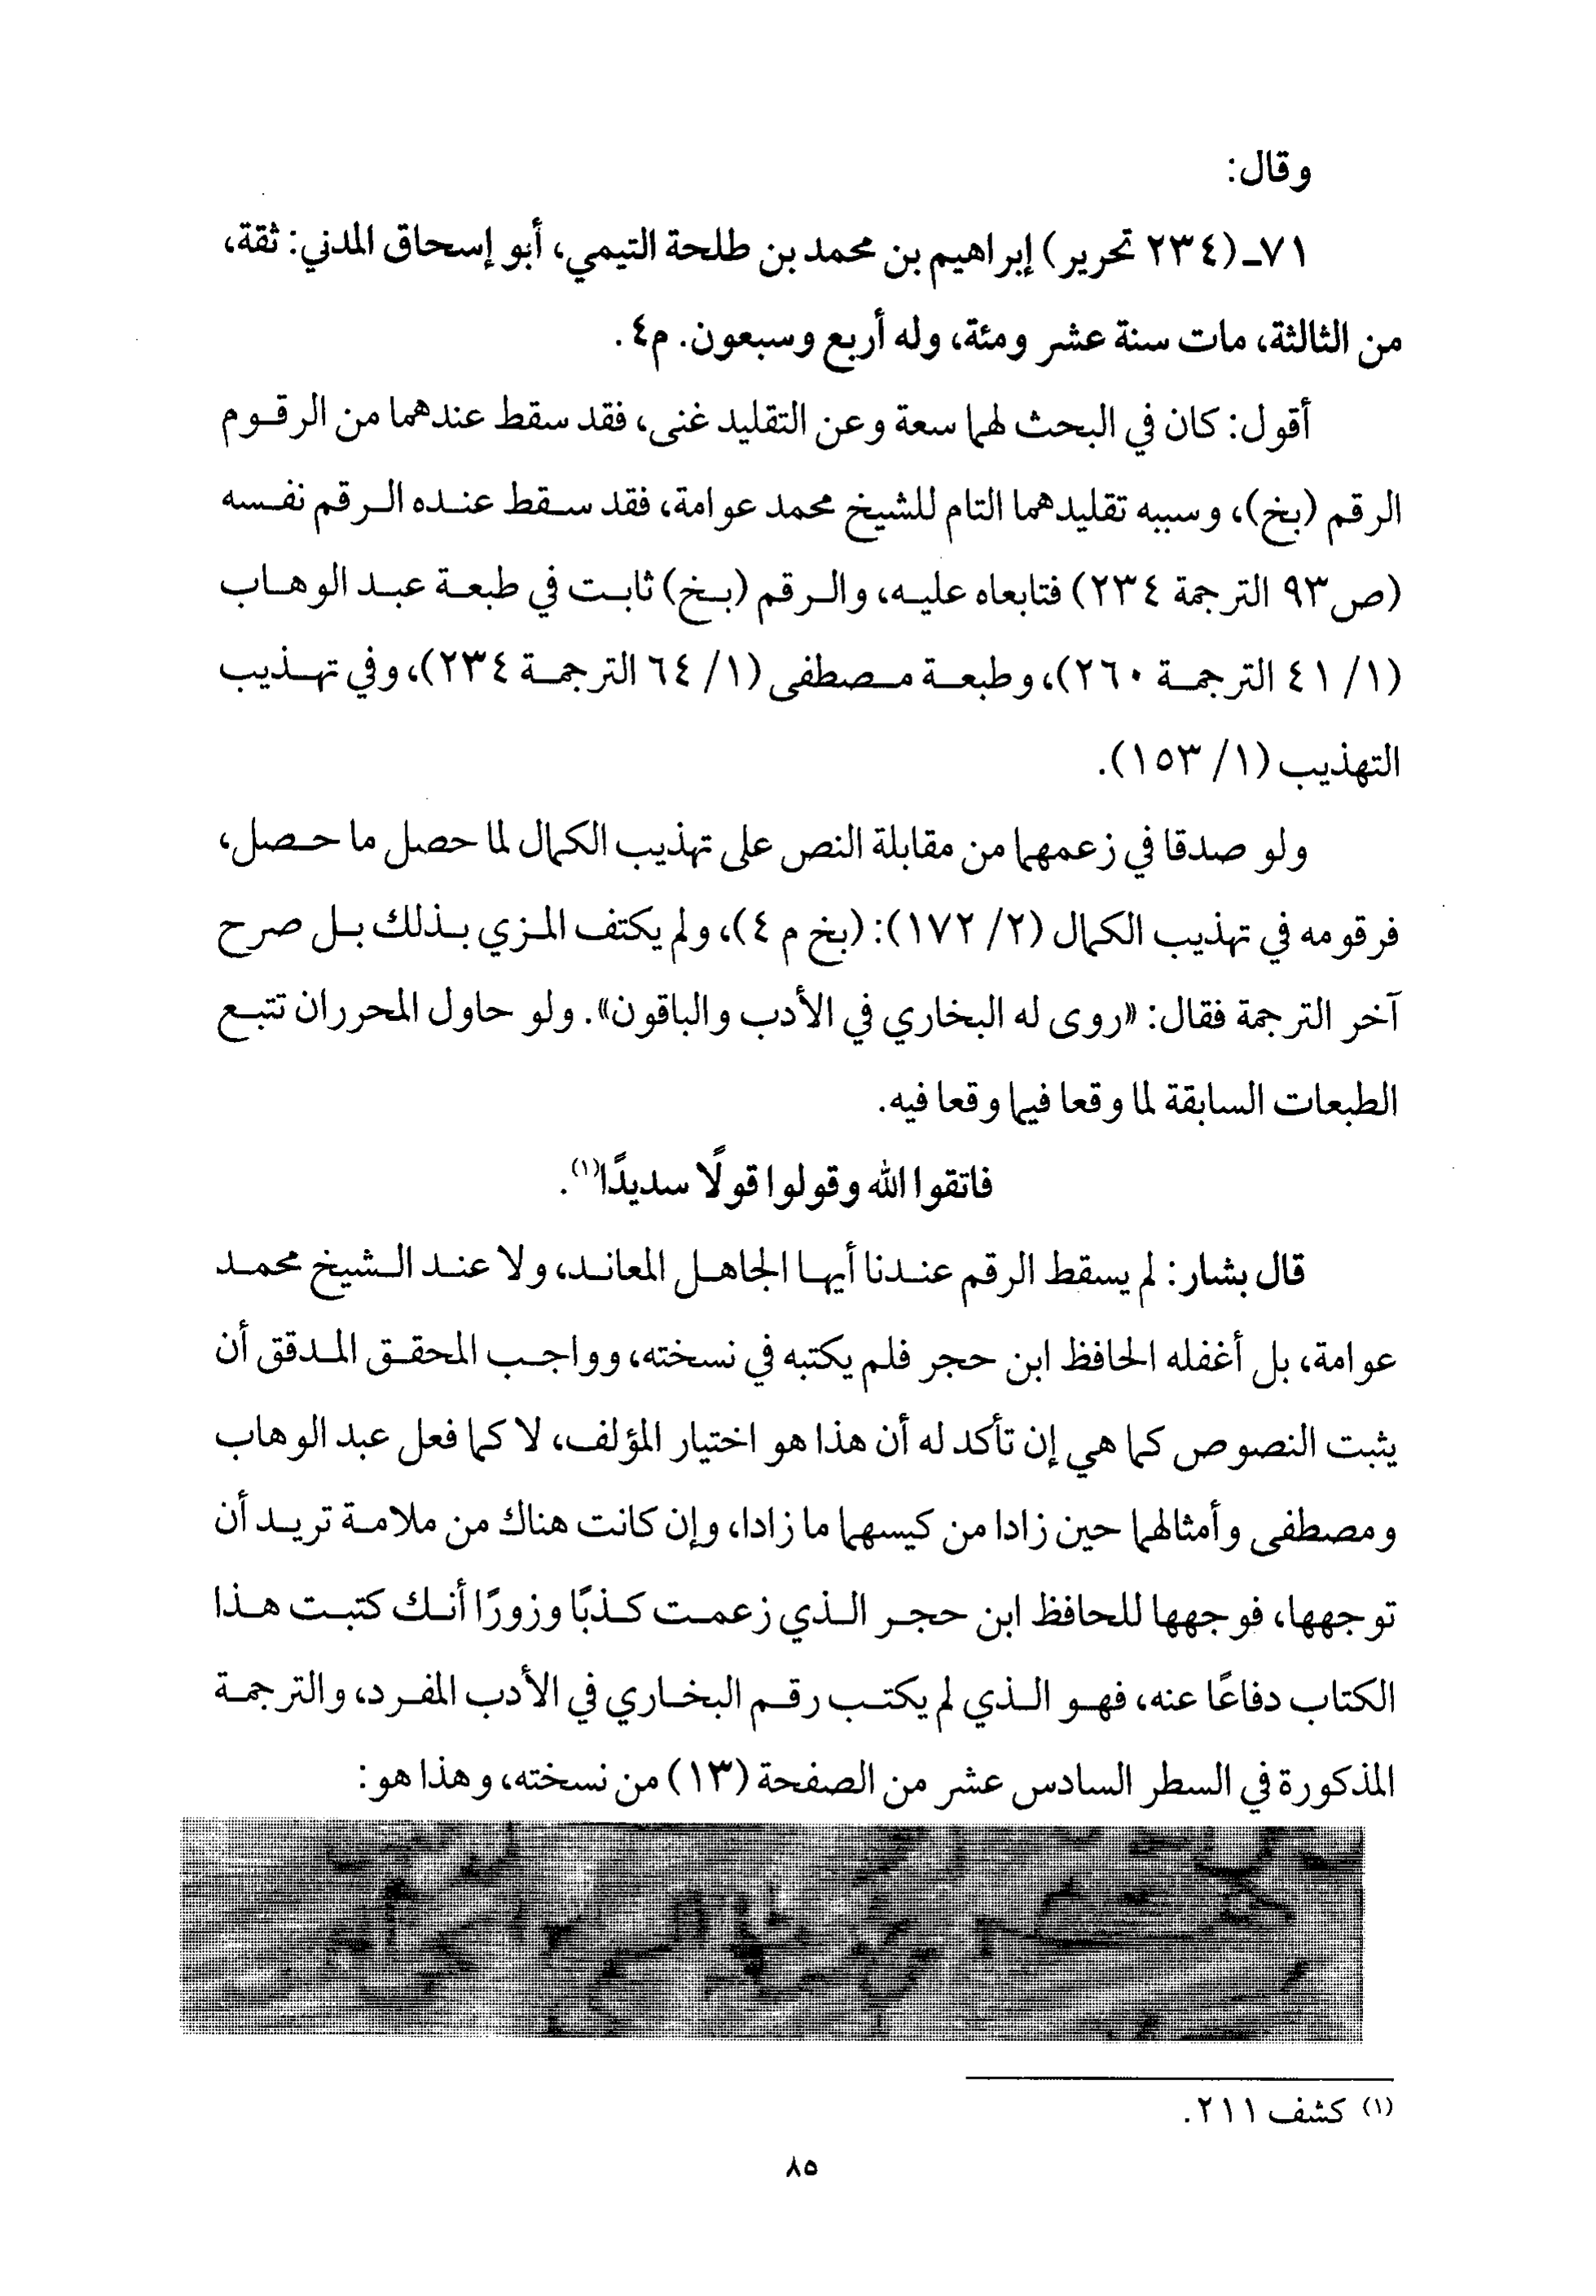 وقال:
٧١ـ (٢٣٤ تحرير) إبراهيم بن محمد بن طلحة التيمي، أبو إسحاق المدني: ثقة،
من الثالثة، مات سنة عشر ومئة، وله أربع وسبعون. م٤.
أقول: كان في البحث لهما سعة وعن التقليد غنى، فقد سقط عندهما من الرقوم
الرقم (بخ)، وسببه تقليدهما التام للشيخ محمد عوامة، فقد سقط عنده الرقم نفسه
(ص٩٣ الترجمة ٢٣٤) فتابعاه عليه، والرقم (بخ) ثابت في طبعة عبد الوهاب
(١/ ٤١ الترجمة ٢٦٠)، وطبعة مصطفى (١/ ٦٤ الترجمة ٢٣٤)، وفي تهذيب
التهذيب (١/ ١٥٣).
ولو صدقا في زعمهما من مقابلة النص على تهذيب الكمال لما حصل ما حصل،
فرقومه في تهذيب الكمال (٢/ ١٧٢): (بخ م ٤)، ولم يكتف المزي بذلك بل صرح
آخر الترجمة فقال: «روى له البخاري في الأدب والباقون». ولو حاول المحرران تتبع
الطبعات السابقة لما وقعا فيما وقعا فيه.
فاتقوا الله وقولوا قولًا سديدًا(١).
قال بشار: لم يسقط الرقم عندنا أيها الجاهل المعاند، ولا عند الشيخ محمد
عوامة، بل أغفله الحافظ ابن حجر فلم يكتبه في نسخته، وواجب المحقق المدقق أن
يثبت النصوص كما هي إن تأكد له أن هذا هو اختيار المؤلف، لا كما فعل عبد الوهاب
ومصطفى وأمثالهما حين زادا من كيسهما ما زادا، وإن كانت هناك من ملامة تريد أن
توجهها، فوجهها للحافظ ابن حجر الذي زعمت كذبًا وزورًا أنك كتبت هذا
الكتاب دفاعًا عنه، فهو الذي لم يكتب رقم البخاري في الأدب المفرد، والترجمة
المذكورة في السطر السادس عشر من الصفحة (١٣) من نسخته، وهذا هو:
(١) كشف ٢١١.
٨٥